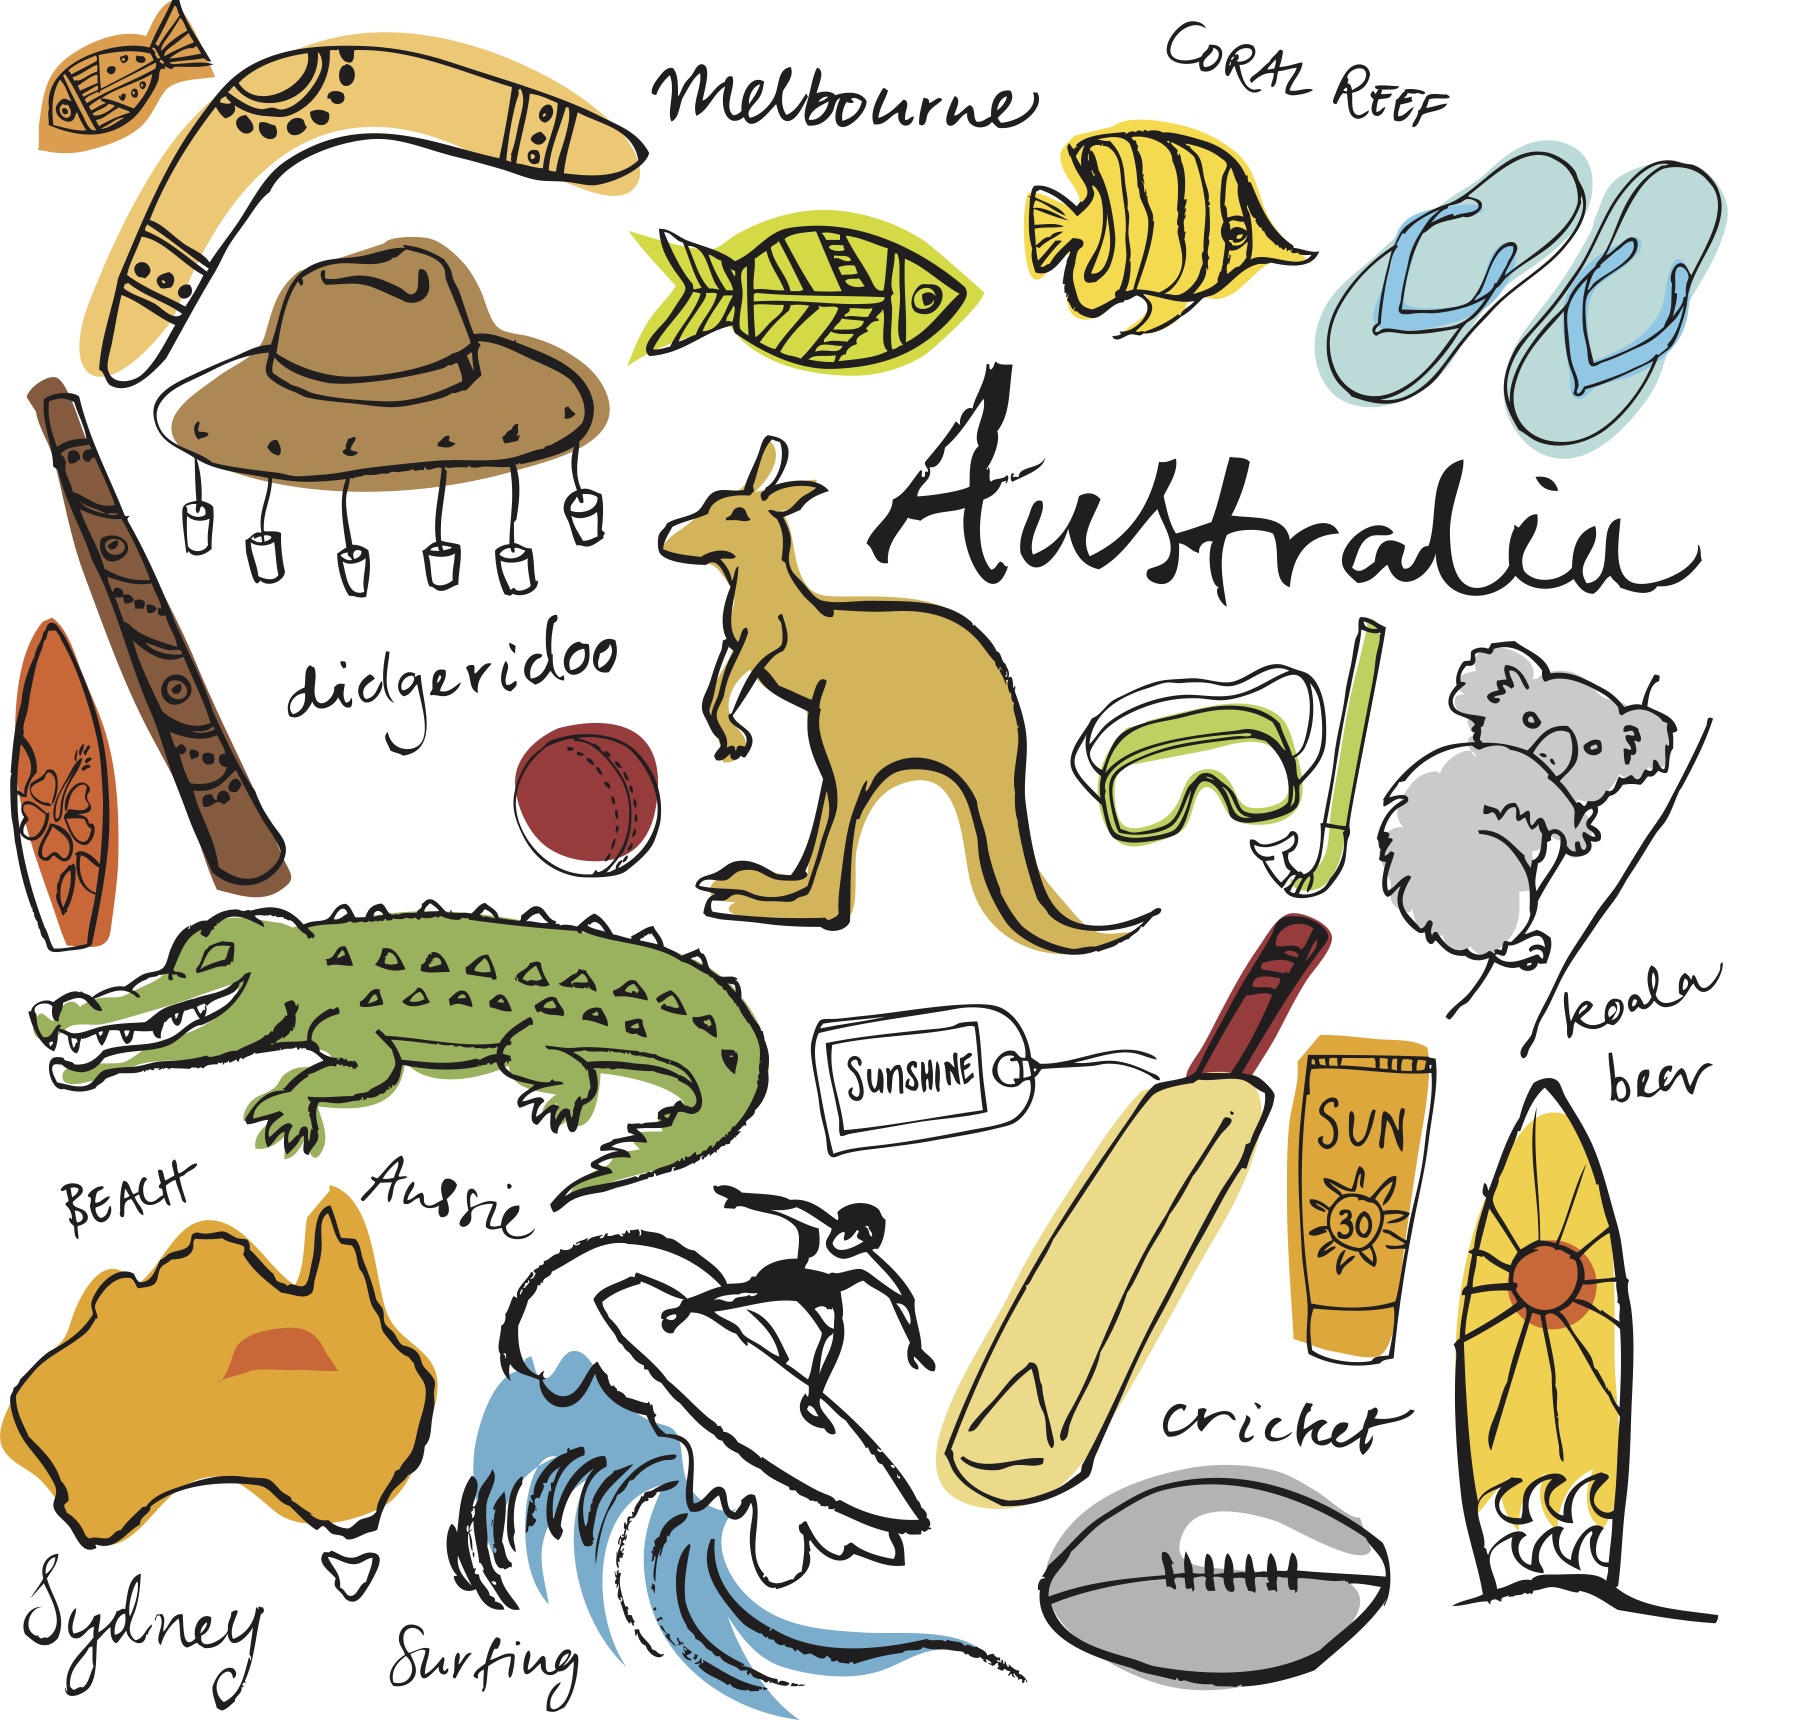 Melbourne
CORAL REEF
Australia
didgeridoo
koala
bear
SUNSHINE
SUN
30
BEACH
Aussie
cricket
Sydney
Surfing